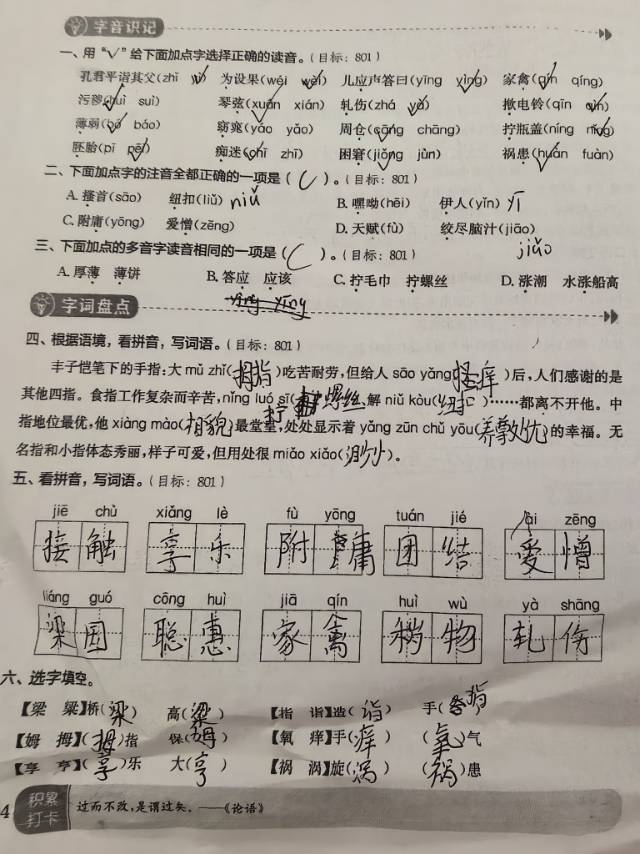 字音识记
一、用“√”给下面加点字选择正确的读音。(目标：801)
孔君平诣其父(zhǐ yì) 为设果(wéi wèi) 儿应声答曰(yīng yìng) 家禽(qín qíng)
污秽(huì suì) 琴弦(xuán xián) 轧伤(zhá yà) 揿电铃(qīn qìn)
薄弱(bó báo) 窈窕(yáo yǎo) 周仓(cāng chāng) 拧瓶盖(níng nǐng)
胚胎(pī pēi) 痴迷(chī zhī) 困窘(jiǒng jùn) 祸患(huàn fuàn)
二、下面加点字的注音全都正确的一项是( C )。(目标：801)
A. 搔首(sāo) 纽扣(liǔ) niǔ B. 嘿呦(hēi) 伊人(yǐn) yī
C. 附庸(yōng) 爱憎(zēng) D. 天赋(fù) 绞尽脑汁(jiāo)
jiǎo
三、下面加点的多音字读音相同的一项是( C )。(目标：801)
A. 厚薄 薄饼 B. 答应 应该 C. 拧毛巾 拧螺丝 D. 涨潮 水涨船高
字词盘点
四、根据语境，看拼音，写词语。(目标：801)
丰子恺笔下的手指：大 mǔ zhǐ(拇指)吃苦耐劳，但给人 sāo yǎng(搔痒)后，人们感谢的是
其他四指。食指工作复杂而辛苦，nǐng luó sī(拧螺丝、解 niǔ kòu(纽扣)……都离不开他。中
指地位最优，他 xiàng mào(相貌)最堂皇，处处显示着 yǎng zūn chǔ yōu(养尊处优)的幸福。无
名指和小指体态秀丽，样子可爱，但用处很 miǎo xiǎo(渺小)。
五、看拼音，写词语。(目标：801)
jiē chù xiǎng lè fù yōng tuán jié ài zēng
接触 享乐 附庸 团结 爱憎
liáng guó cōng huì jiā qín huì wù yà shāng
梁国 聪惠 家禽 秽物 轧伤
六、选字填空。
【梁 粱】桥(梁) 高(粱) 【指 诣】造(诣) 手(指)
【姆 拇】(拇)指 保(姆) 【氧 痒】手(痒) (氧)气
【享 亨】(享)乐 大(亨) 【祸 涡】旋(涡) (祸)患
4 积累打卡 过而不改，是谓过矣。——《论语》